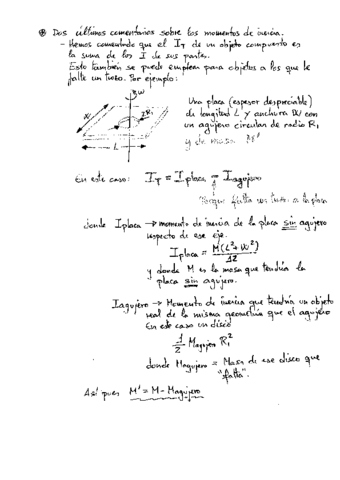 ⊛ Dos últimos comentarios sobre los momentos de inercia.
- Hemos comentado que el I_T de un objeto compuesto es
la suma de los I de sus partes.
Esto también se puede emplear para objetos a los que le
falte un trozo. Por ejemplo:
ω
Una placa (espesor despreciable)
de longitud L y anchura W con
un agujero circular de radio R₁
y de masa M'
W
R₁
L
En este caso: I_T = I placa - I agujero
Porque falta ese trozo a la placa
donde I placa → momento de inercia de la placa sin agujero
respecto de ese eje.
I placa = M(L²+W²)/12
y donde M es la masa que tendría la
placa sin agujero.
I agujero → Momento de inercia que tendría un objeto
real de la misma geometría que el agujero
En este caso un disco
1/2 M agujero R₁²
donde M agujero = Masa de ese disco que
"falta".
Así pues M' = M - M agujero